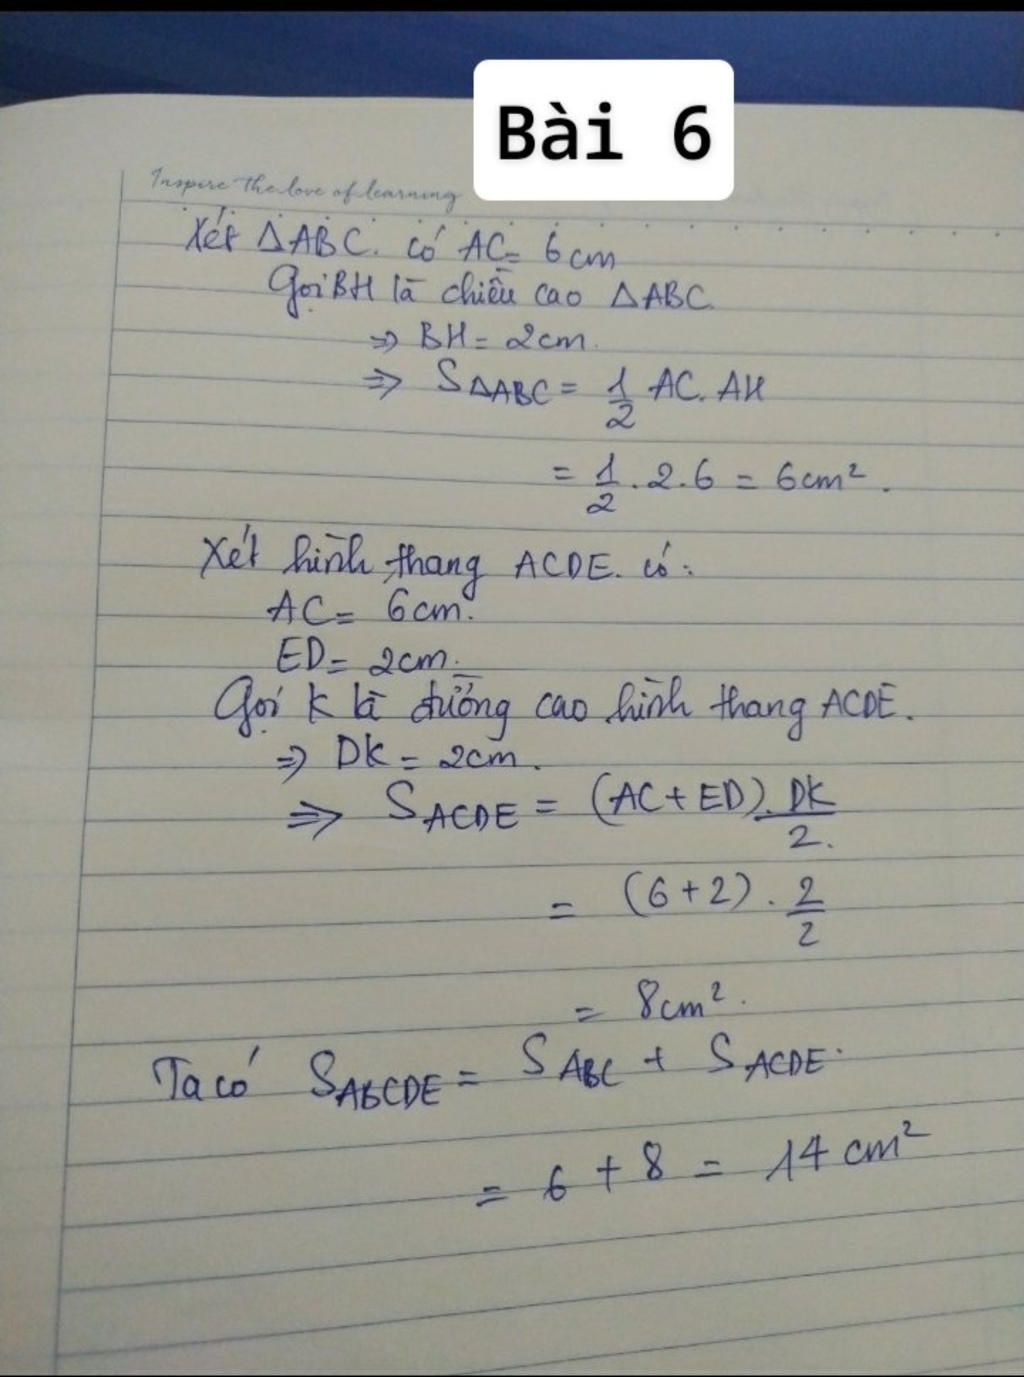 Bài 6
Inspire the love of learning
Xét ΔABC. có AC = 6cm
Gọi BH là chiều cao ΔABC
⇒ BH = 2cm.
⇒ SΔABC = 1/2 AC. AH
= 1/2 . 2 . 6 = 6cm².
Xét hình thang ACDE. có:
AC = 6cm.
ED = 2cm.
Gọi K là đường cao hình thang ACDE.
⇒ DK = 2cm.
⇒ S ACDE = (AC + ED). DK/2.
= (6 + 2) . 2/2
= 8cm².
Ta có S ABCDE = S ABC + S ACDE.
= 6 + 8 = 14 cm²